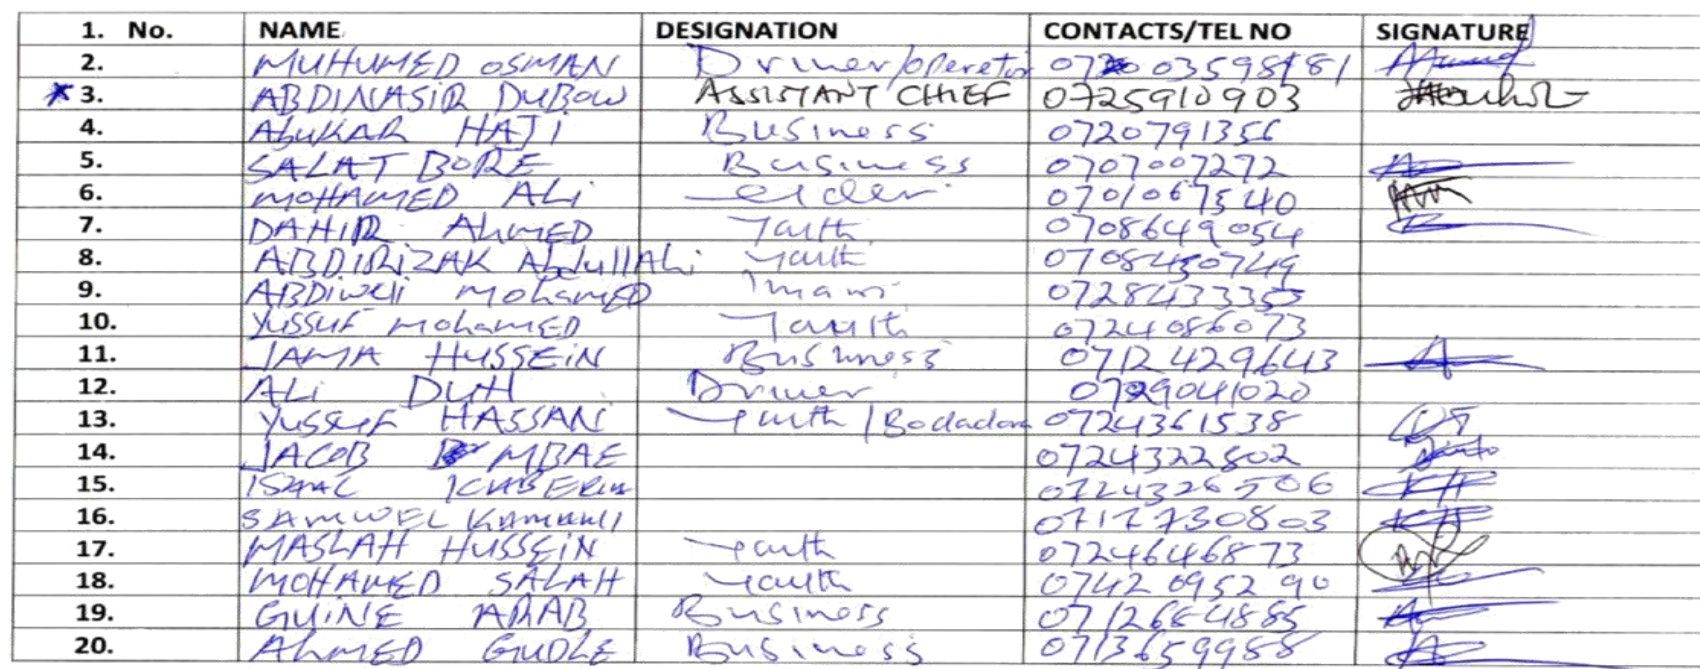 1. No. NAME DESIGNATION CONTACTS/TEL NO SIGNATURE
2. MUHUMED OSMAN Driver/operator
3. ABDINASIR DUBOW ASSISTANT CHIEF 0725910903
4. Abukar HAJI Business 0720791356
5. SALAT BORE Business 0707007272
6. MOHAMED ALi elder 0701067540
7. DAHIR AhMED Youth 0708649054
8. ABDIRIZAK AbdullAhi Youth 0708430749
9. ABDiweli MohamED Imam 0728433355
10. Yussuf MohaMED Youth 0724086073
11. JAMA HUSSEiN Business 07124229643
12. ALi DUH Driver 0729041020
13. Yussuf HASSAN Youth 0724361538
14. JACOB MBAE 0724322802
15. 0724326506
16. SAMWEL 0717730803
17. MASLAH HUSSEiN Youth 0724646873
18. MOHAMED SALAH Youth 0742095290
19. GUINE ARAB Business
20. AhMED GUDLE Business 0713659988